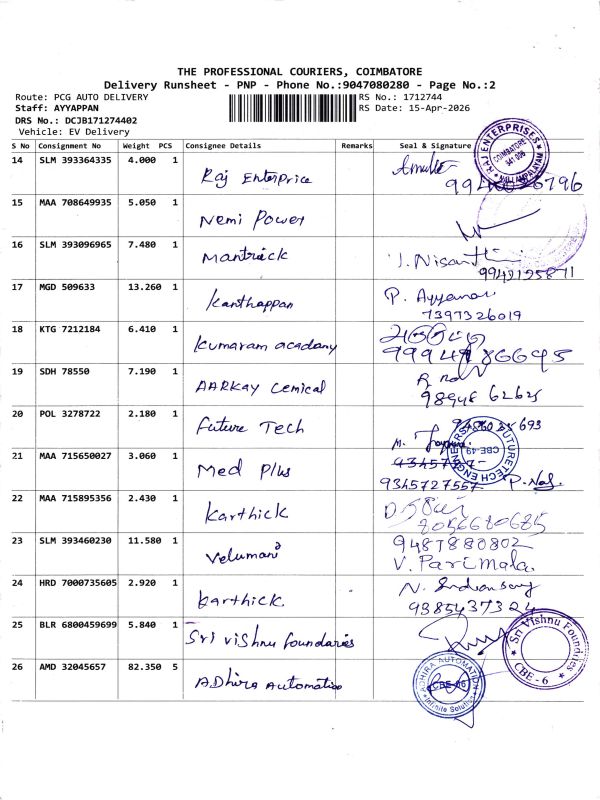 THE PROFESSIONAL COURIERS, COIMBATORE
Delivery Runsheet - PNP - Phone No.:9047080280 - Page No.:2
Route: PCG AUTO DELIVERY RS No.: 1712744
Staff: AYYAPPAN RS Date: 15-Apr-2026
DRS No.: DCJB171274402
Vehicle: EV Delivery
S No Consignment No Weight PCS Consignee Details Remarks Seal & Signature
RAJ ENTERPRISES COIMBATORE NALLAMPALAYAM
14 SLM 393364335 4.000 1 Raj Enterprice
15 MAA 708649935 5.050 1 Nemi Power
16 SLM 393096965 7.480 1 Mantrack J. Nisanthi
17 MGD 509633 13.260 1 Kanthappan P. Ayyanar
7397326019
18 KTG 7212184 6.410 1 Kumaram acadamy
19 SDH 78550 7.190 1 AARKAY Cemical
20 POL 3278722 2.180 1 Future Tech
FUTURETECH ENGINEERS CBE-49
21 MAA 715650027 3.060 1 Med Plus
9345727557
22 MAA 715895356 2.430 1 Karthick
8056680685
23 SLM 393460230 11.580 1 Velumani 9487880802
V. Parimala.
24 HRD 7000735605 2.920 1 Karthick
9385437324
25 BLR 6800459699 5.840 1 Sri Vishnu foundaries
Sri Vishnu Foundries CBE - 6
26 AMD 32045657 82.350 5 ADhira Automation
ADHIRA AUTOMATION CBE-06 Infinite Solution